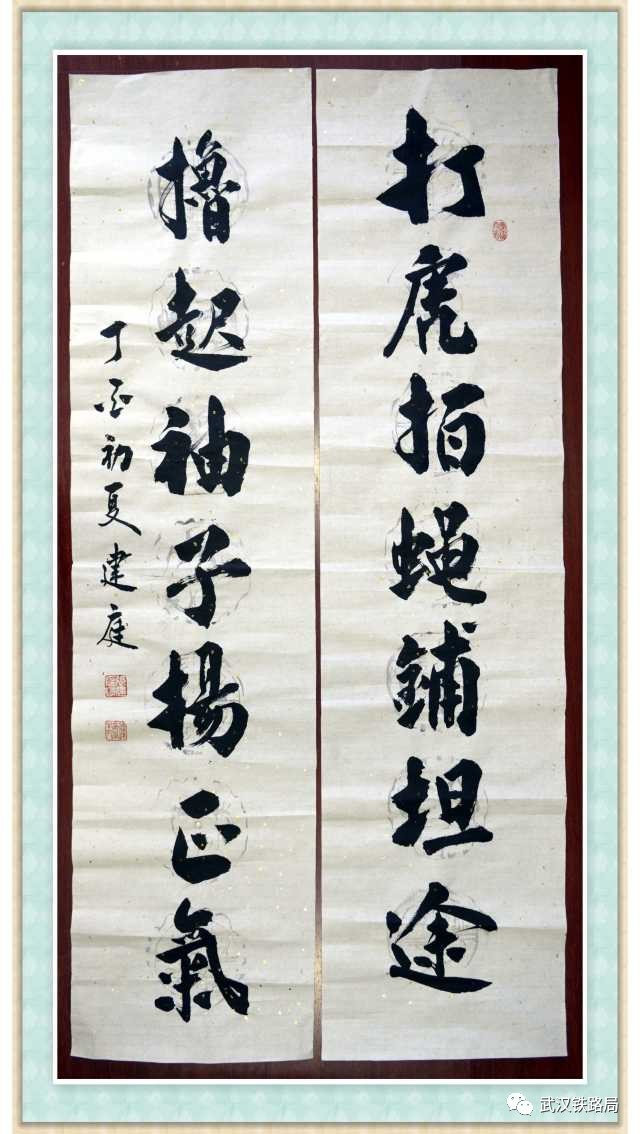 打虎拍蝇鋪坦途
擼起袖子揚正氣
丁酉初夏建庭
武汉铁路局